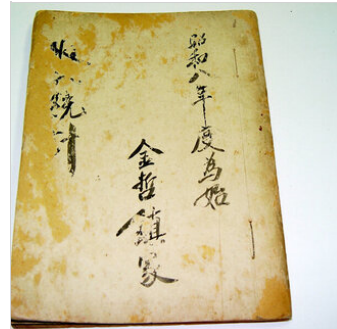 昭和八年度為始
金哲鎮家
統計